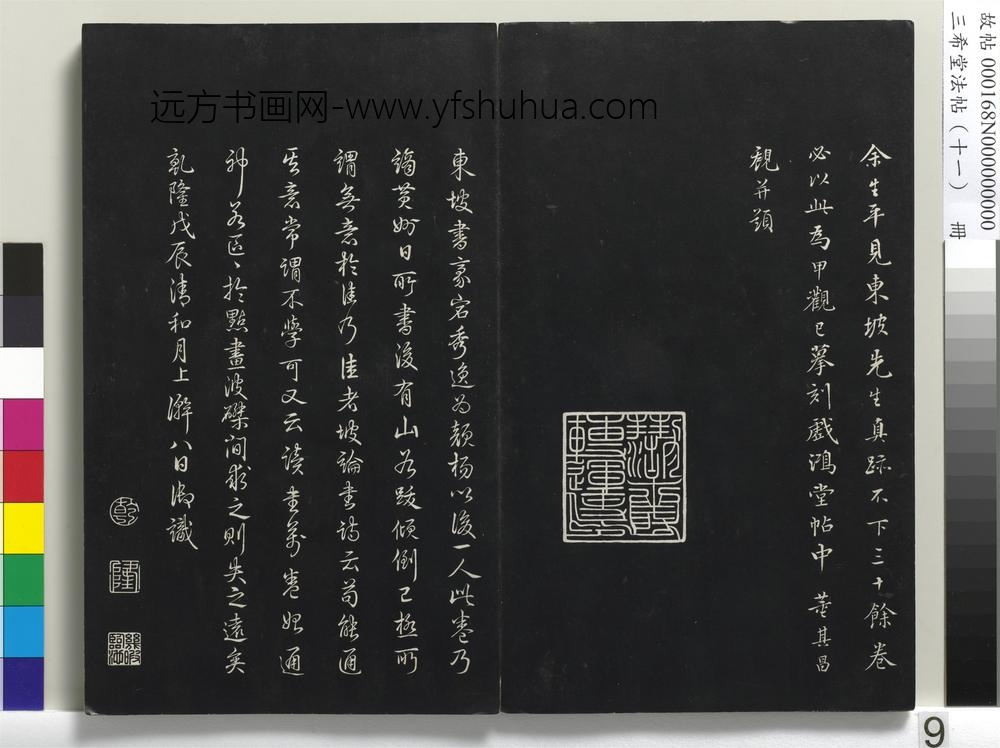 远方书画网-www.yfshuhua.com
故帖 000168N000000000
三希堂法帖（十一） 冊
余生平見東坡先生真跡不下三十餘卷
必以此為甲觀已摹刻戲鴻堂帖中 董其昌
觀并題
東坡書豪宕秀逸為顏楊以後一人此卷乃
謫黃州日所書後有山谷跋傾倒已極所
謂無意於佳乃佳者坡論書詩云苟能通
其意常謂不學可又云讀書萬卷始通
神若區〻於點畫波磔間求之則失之遠矣
乾隆戊辰清和月上澣八日御識
乾
隆
9